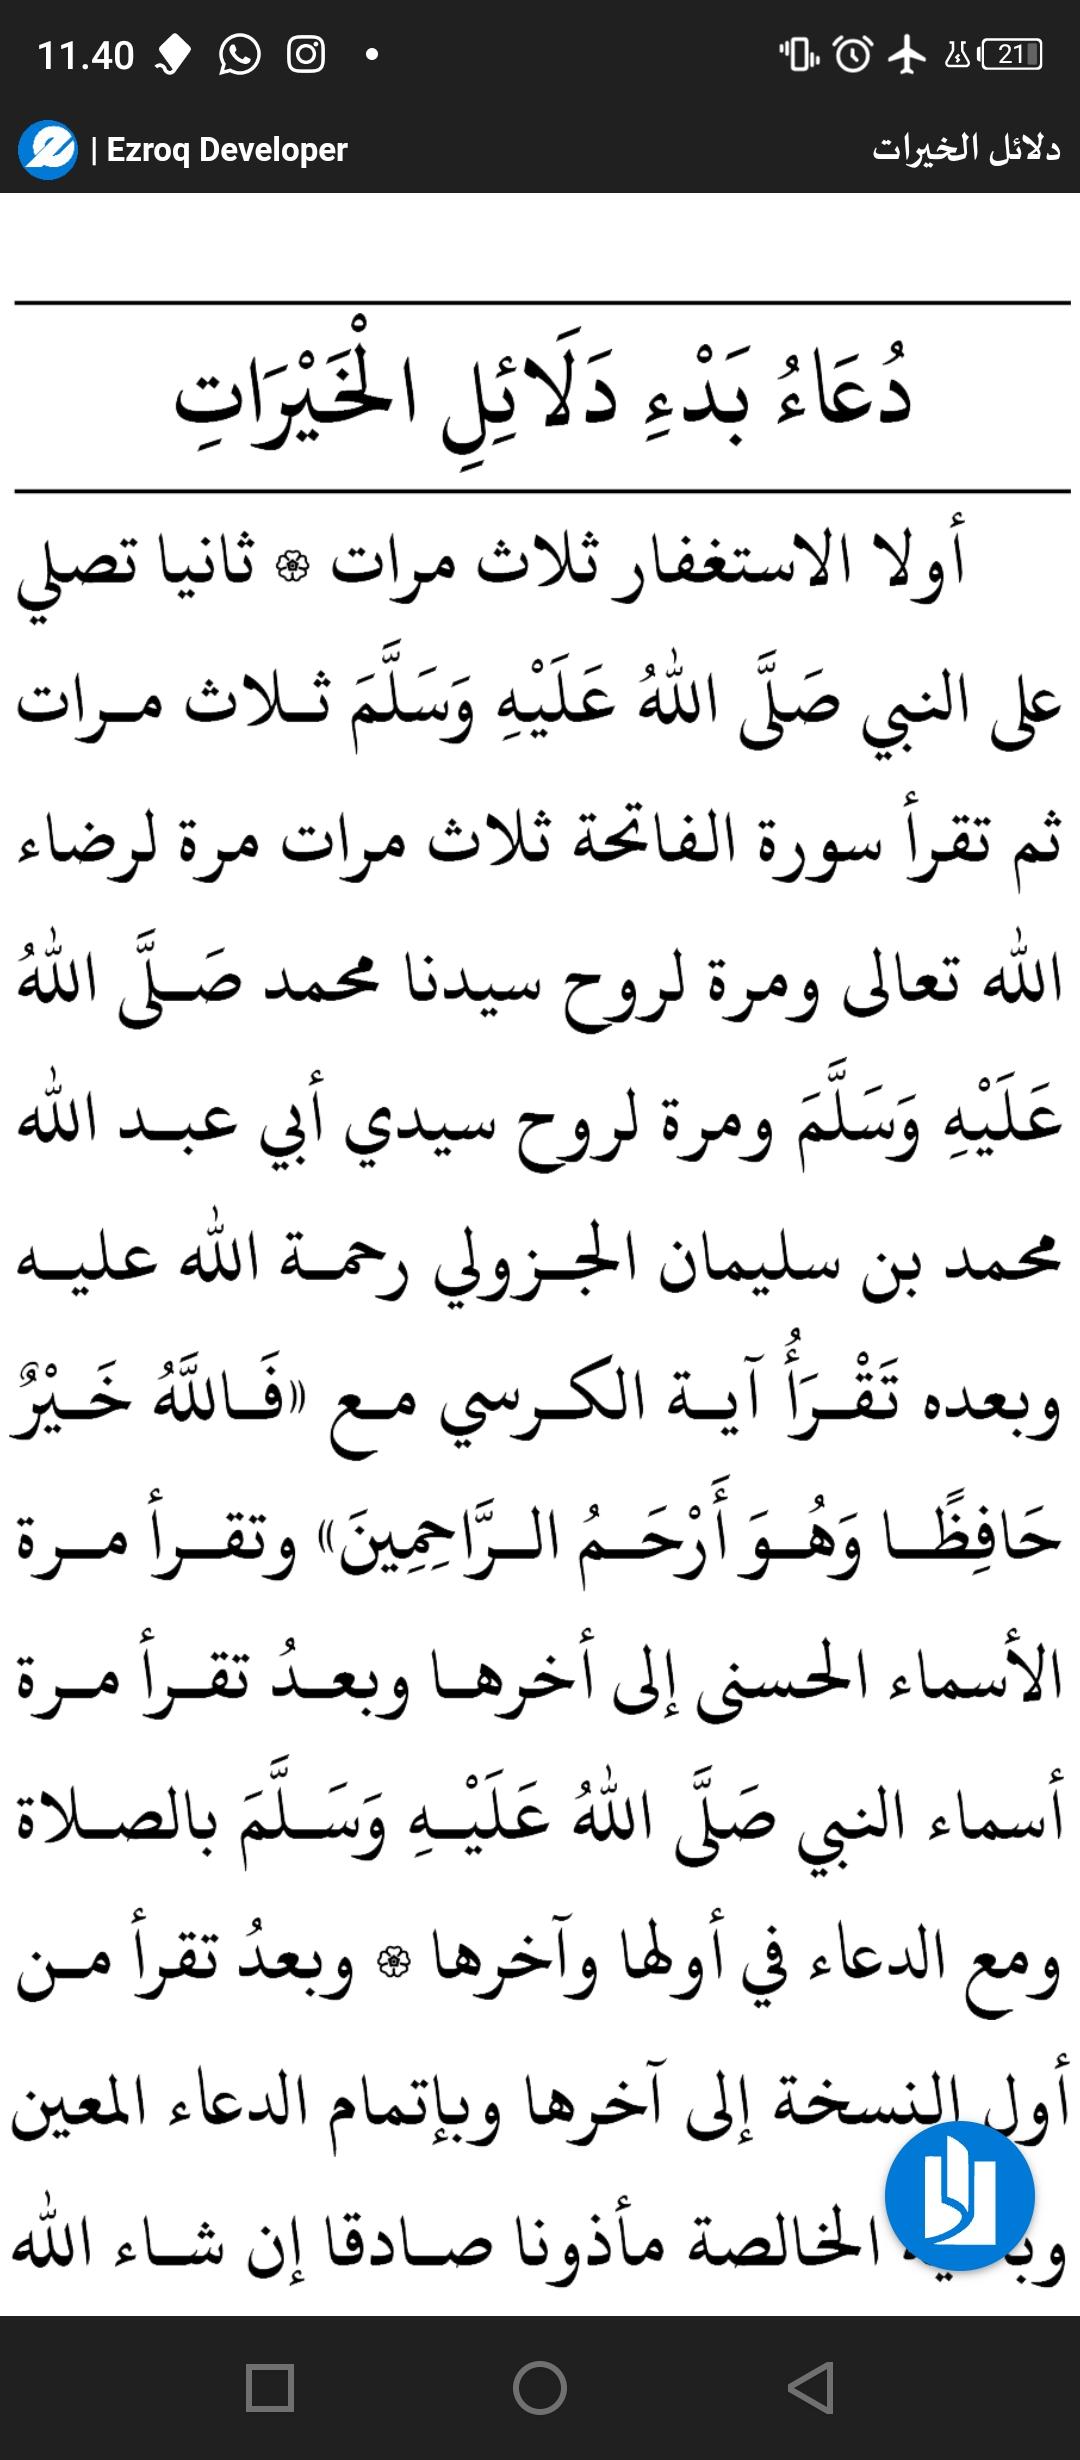 11.40
21
| Ezroq Developer
دلائل الخيرات
دُعَاءُ بَدْءِ دَلَائِلِ الْخَيْرَاتِ
أولا الاستغفار ثلاث مرات ۞ ثانيا تصلي
على النبي صَلَّى اللهُ عَلَيْهِ وَسَلَّمَ ثلاث مرات
ثم تقرأ سورة الفاتحة ثلاث مرات مرة لرضاء
الله تعالى ومرة لروح سيدنا محمد صَلَّى اللهُ
عَلَيْهِ وَسَلَّمَ ومرة لروح سيدي أبي عبد الله
محمد بن سليمان الجزولي رحمة الله عليه
وبعده تَقْرَأُ آية الكرسي مع «فَاللَّهُ خَيْرٌ
حَافِظًا وَهُوَ أَرْحَمُ الرَّاحِمِينَ» وتقرأ مرة
الأسماء الحسنى إلى أخرها وبعدُ تقرأ مرة
أسماء النبي صَلَّى اللهُ عَلَيْهِ وَسَلَّمَ بالصلاة
ومع الدعاء في أولها وآخرها ۞ وبعدُ تقرأ من
أول النسخة إلى آخرها وبإتمام الدعاء المعين
الخالصة مأذونا صادقا إن شاء الله